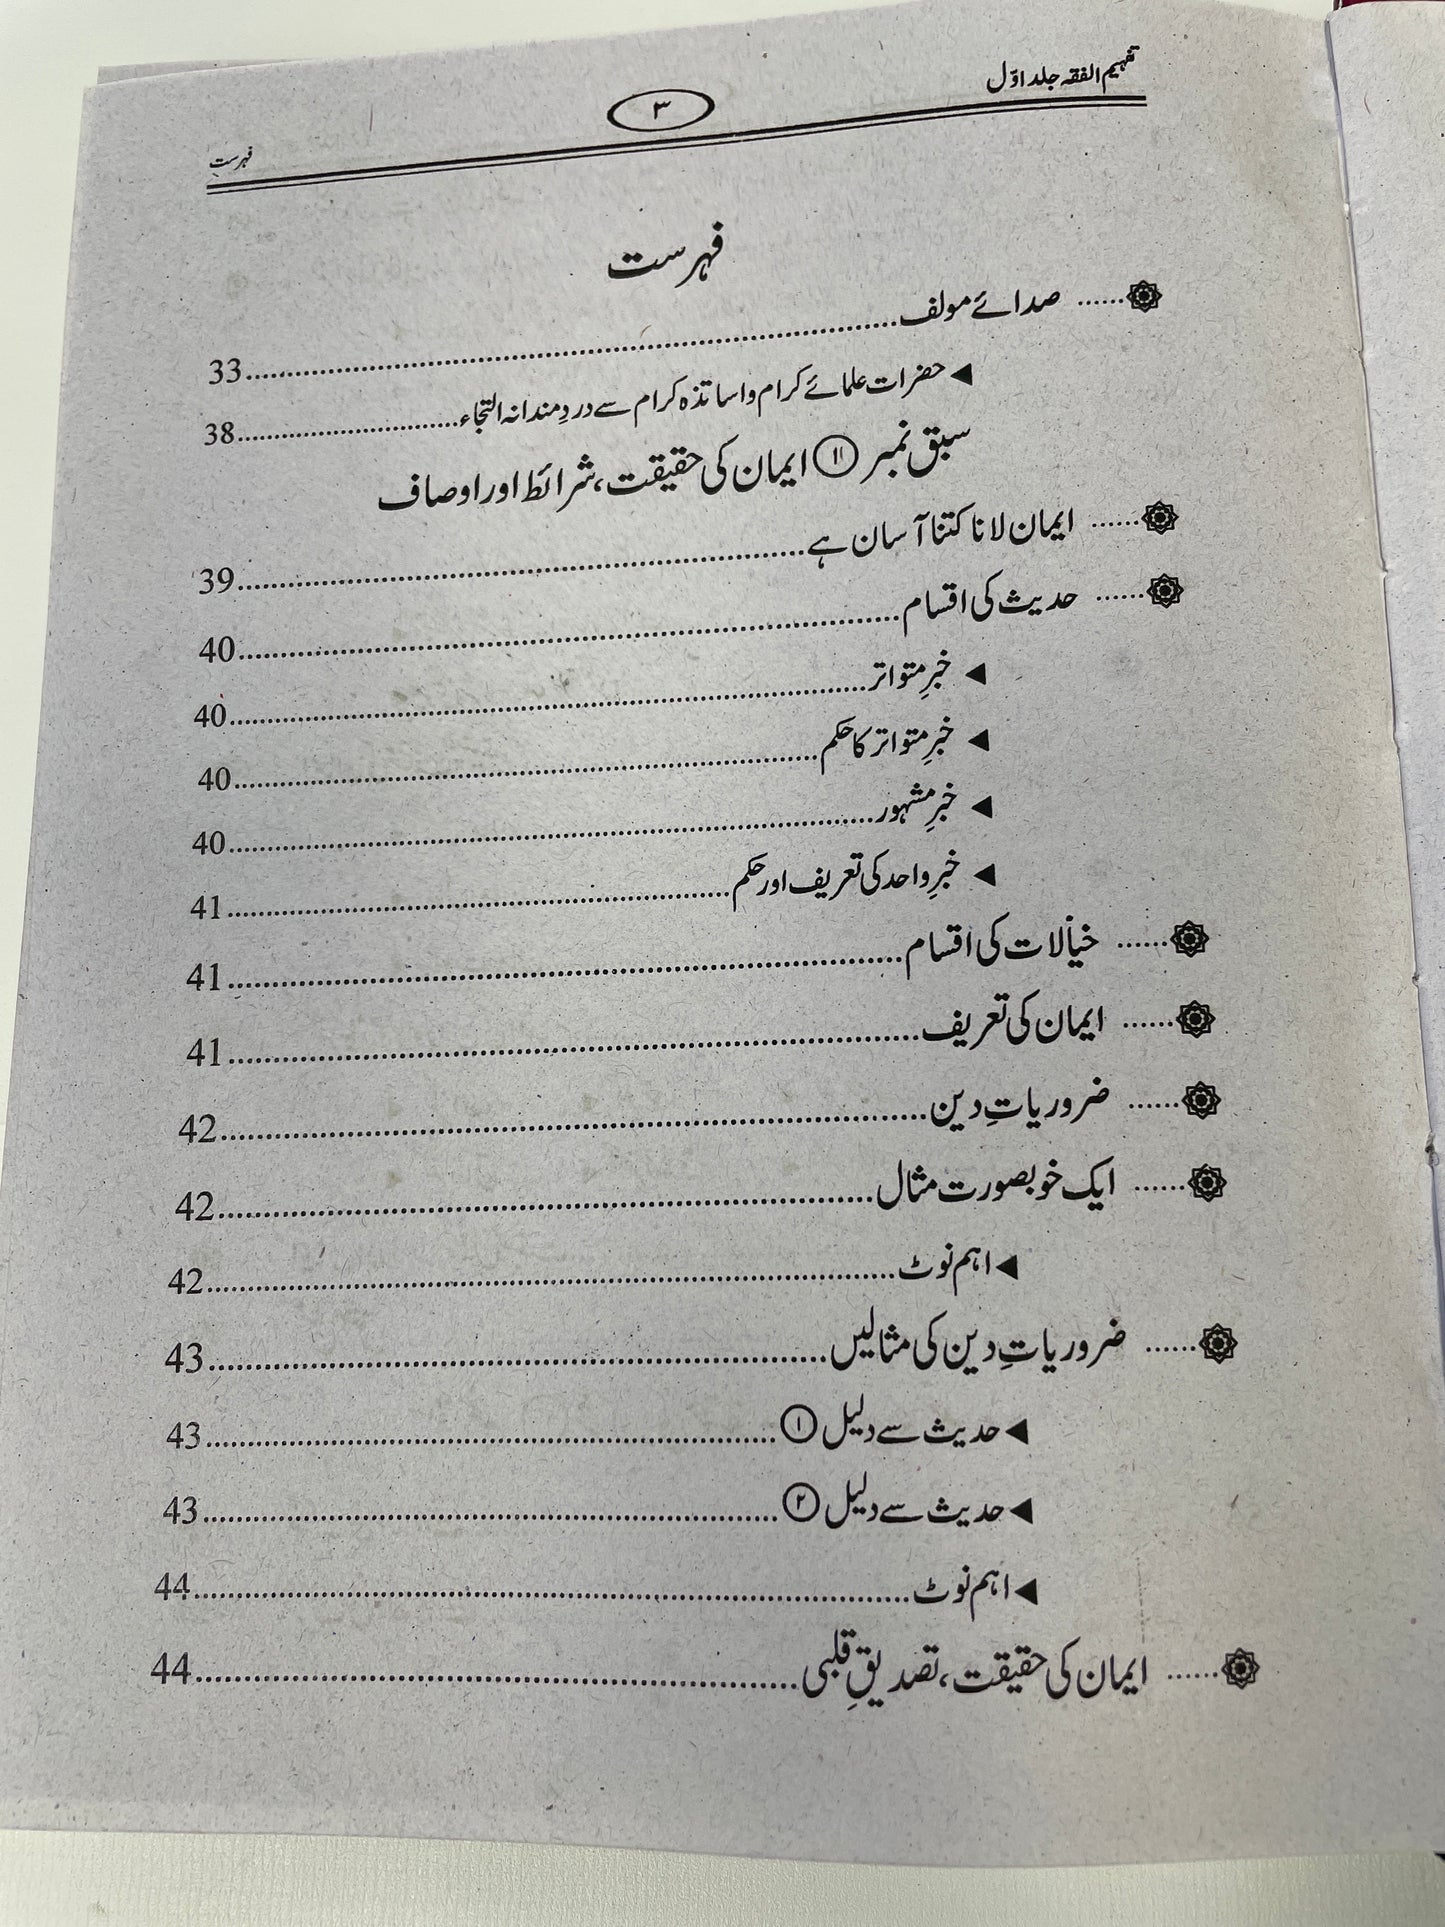 تفہیم الفقہ جلد اوّل
۳
فہرست
فہرست
...... صدائے مولف ...... 33
◄ حضرات علمائے کرام و اساتذہ کرام سے دردِ مندانہ التجاء ...... 38
سبق نمبر ⑪ ایمان کی حقیقت، شرائط اور اوصاف
...... ایمان لانا کتنا آسان ہے ...... 39
...... حدیث کی اقسام ...... 40
◄ خبرِ متواتر ...... 40
◄ خبرِ متواتر کا حکم ...... 40
◄ خبرِ مشہور ...... 40
◄ خبرِ واحد کی تعریف اور حکم ...... 41
...... خیالات کی اقسام ...... 41
...... ایمان کی تعریف ...... 41
...... ضروریاتِ دین ...... 42
...... ایک خوبصورت مثال ...... 42
◄ اہم نوٹ ...... 42
...... ضروریاتِ دین کی مثالیں ...... 43
◄ حدیث سے دلیل ① ...... 43
◄ حدیث سے دلیل ② ...... 43
◄ اہم نوٹ ...... 44
...... ایمان کی حقیقت، تصدیقِ قلبی ...... 44